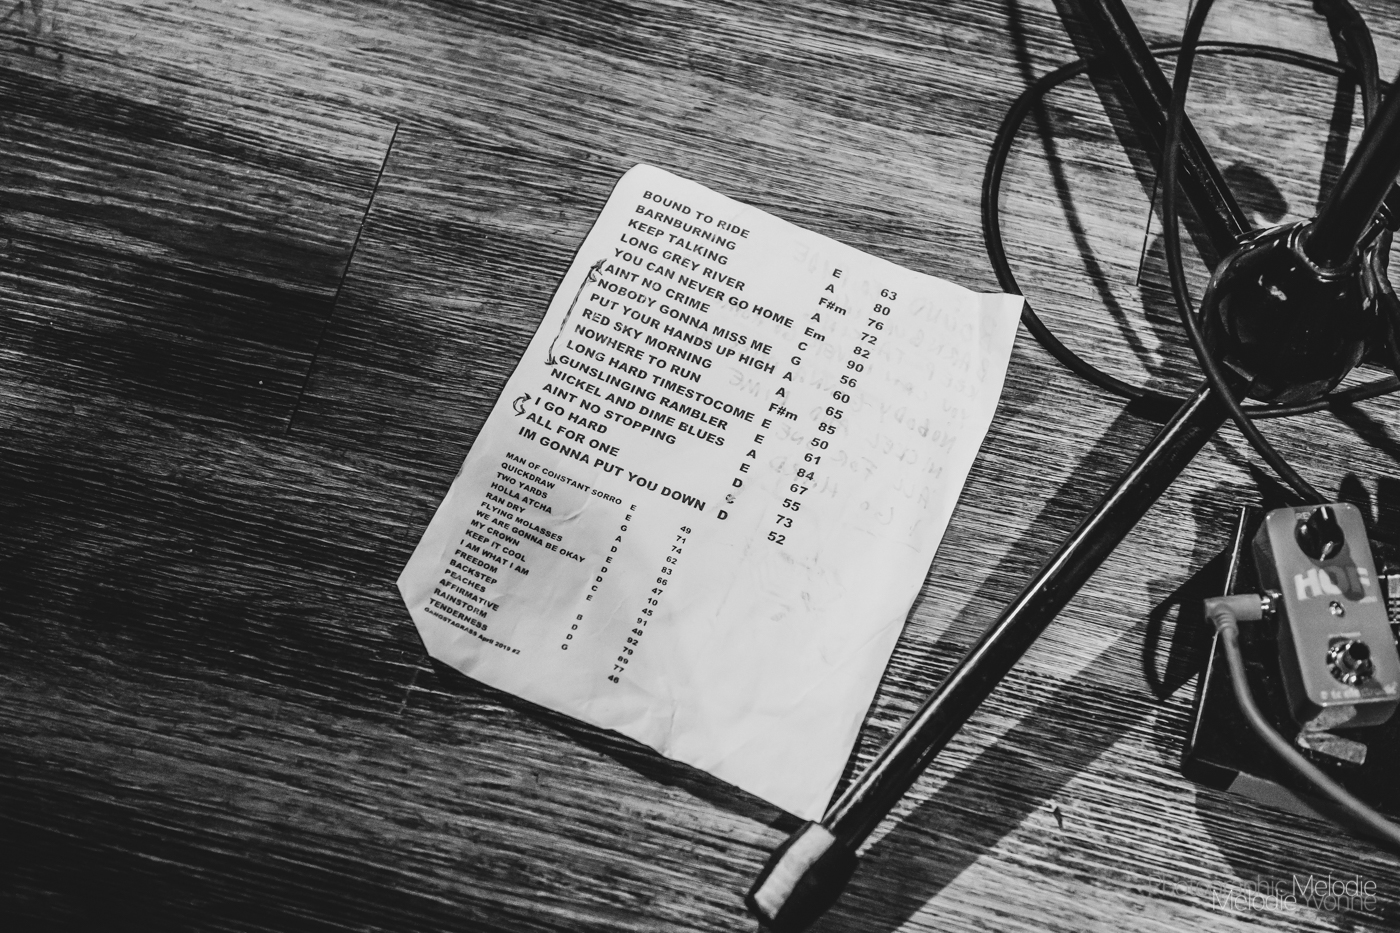 BOUND TO RIDE E 63
BARNBURNING A 80
KEEP TALKING F#m 76
LONG GREY RIVER A 72
YOU CAN NEVER GO HOME Em 82
AINT NO CRIME C 90
NOBODY GONNA MISS ME G 56
PUT YOUR HANDS UP HIGH A 60
RED SKY MORNING A 65
NOWHERE TO RUN F#m 85
LONG HARD TIMESTOCOME E 50
GUNSLINGING RAMBLER E 61
NICKEL AND DIME BLUES A 84
AINT NO STOPPING E 67
I GO HARD D 55
ALL FOR ONE 73
IM GONNA PUT YOU DOWN D 52
MAN OF CONSTANT SORRO E 49
QUICKDRAW E 71
TWO YARDS G 74
HOLLA ATCHA A 62
RAN DRY D 83
FLYING MOLASSES E 66
WE ARE GONNA BE OKAY D 47
MY CROWN D 10
KEEP IT COOL C 45
I AM WHAT I AM E 91
FREEDOM 48
BACKSTEP B 92
PEACHES D 79
AFFIRMATIVE D 89
RAINSTORM G 77
TENDERNESS 46
GANGSTAGRASS April 2019 #2
HOF
Photographic Melodie
Melodie Yvonne